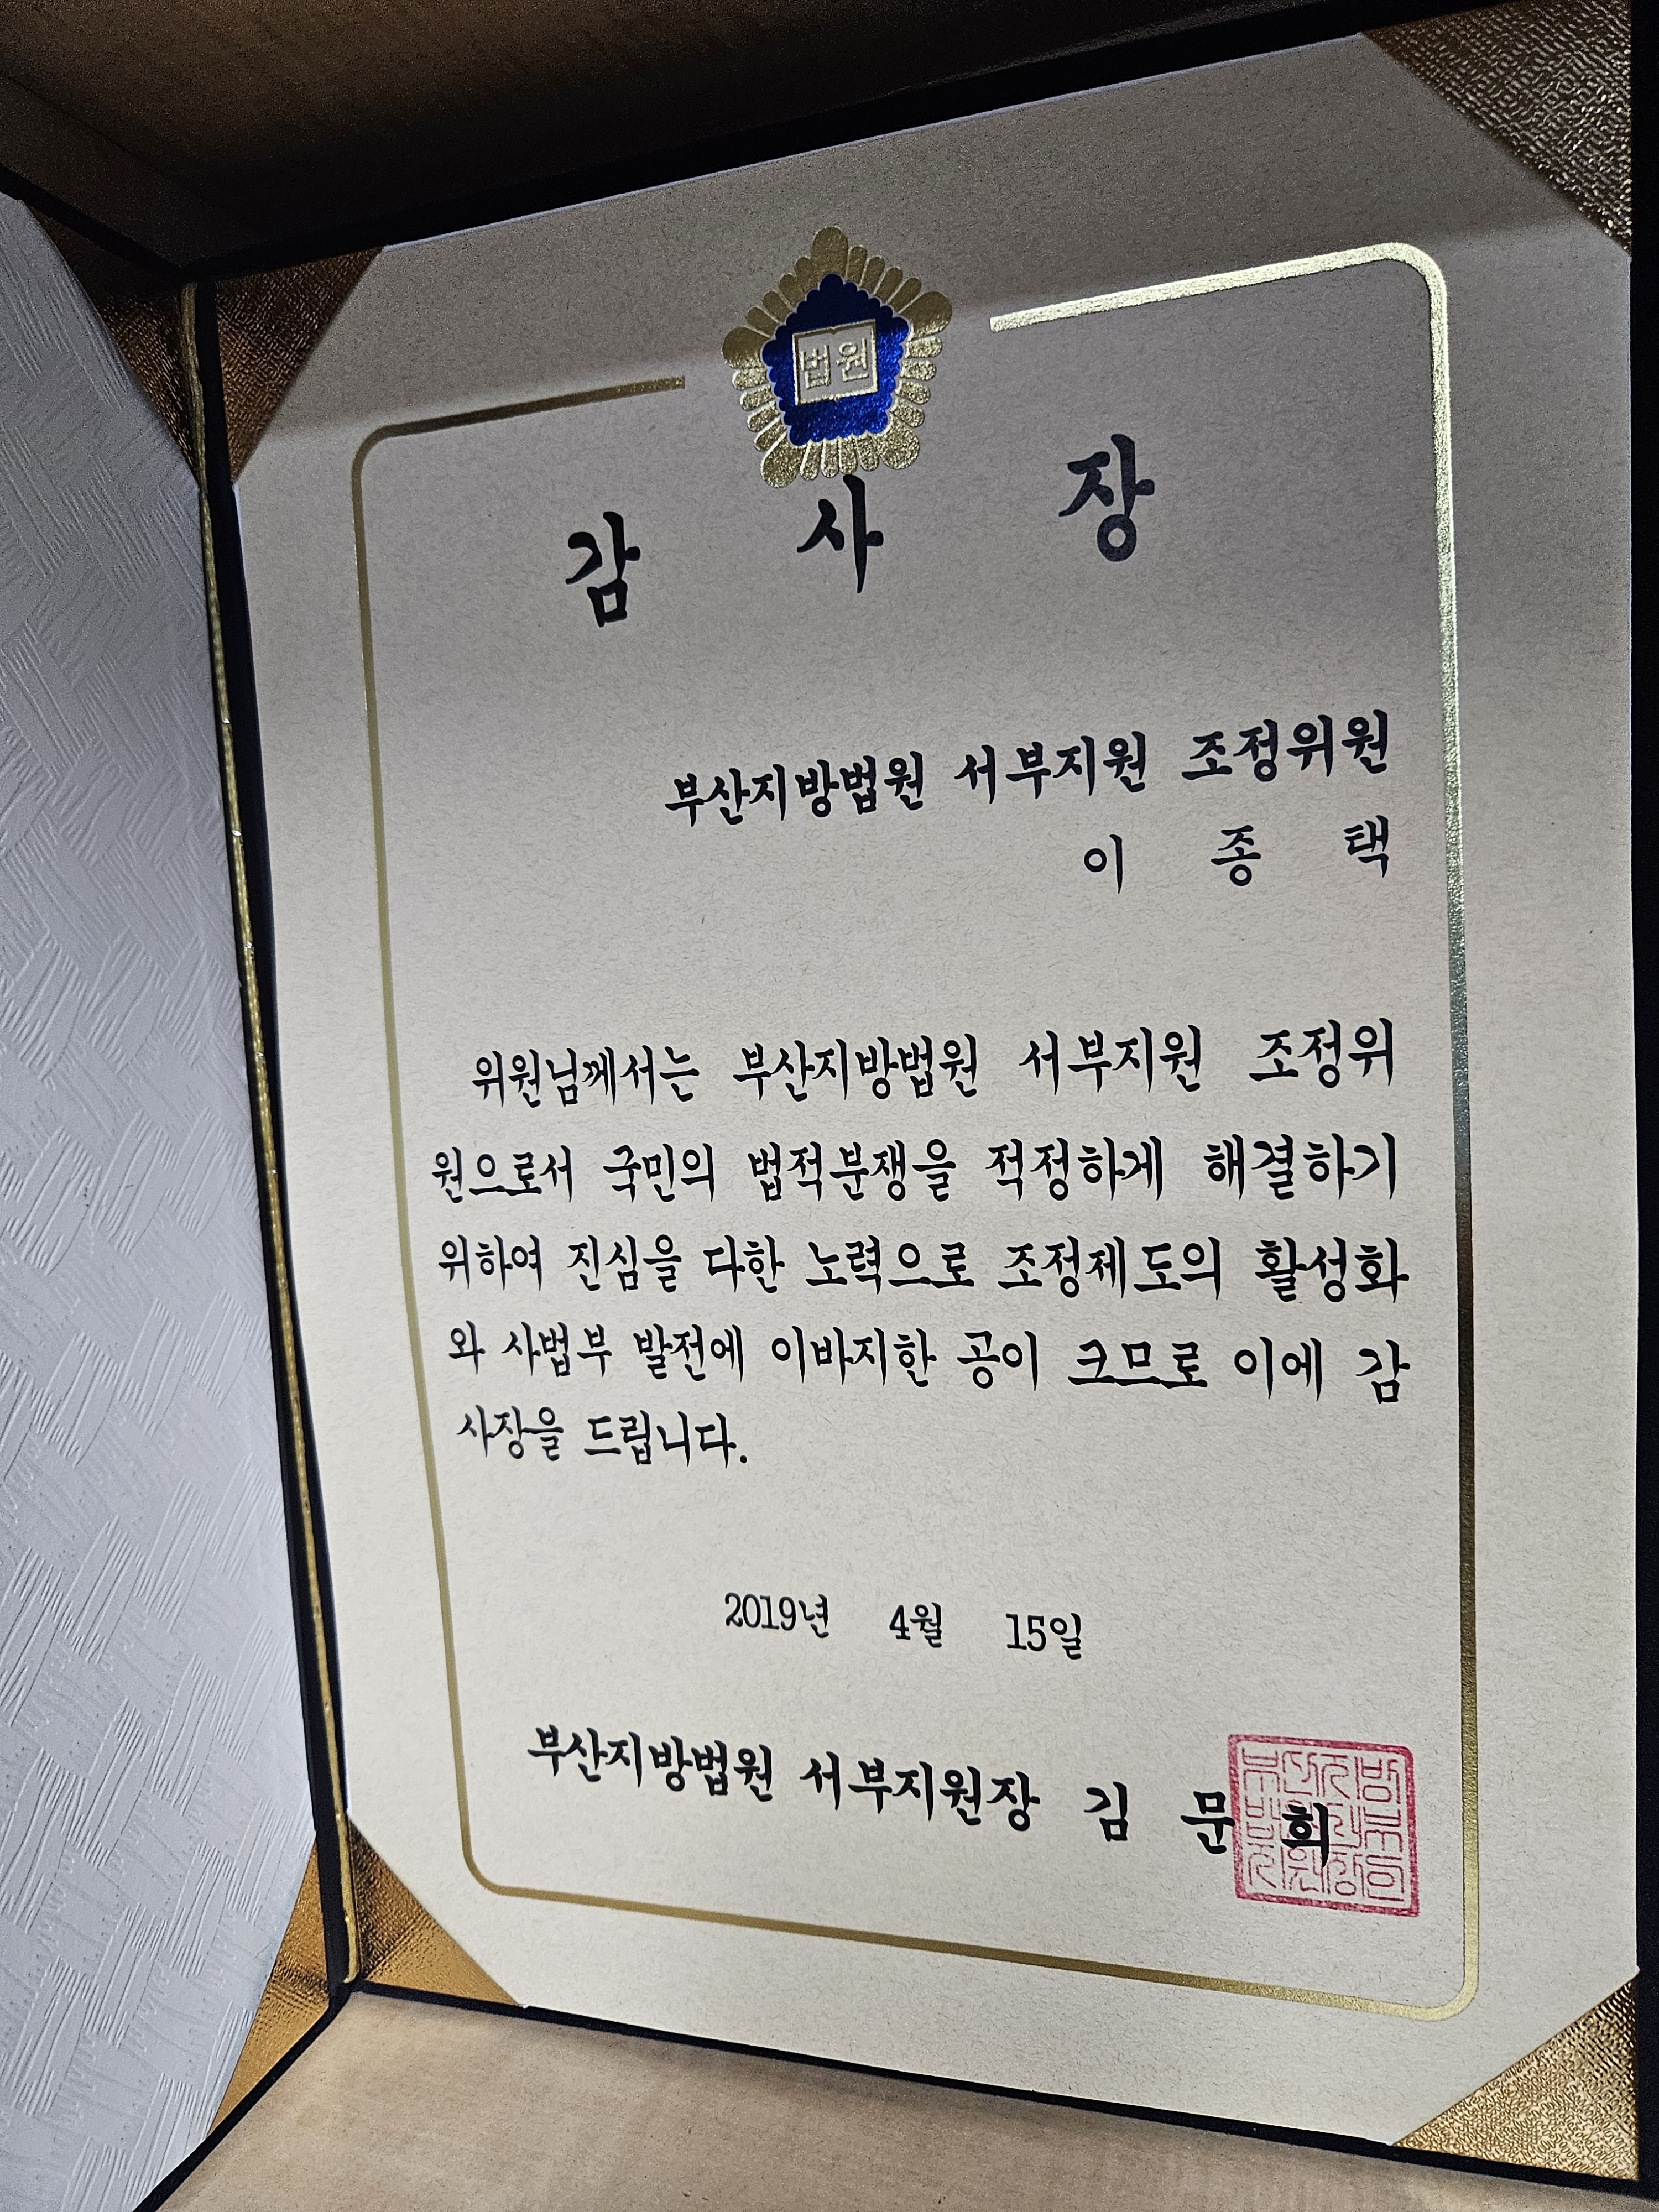 법원
감 사 장
부산지방법원 서부지원 조정위원
이 종 택
위원님께서는 부산지방법원 서부지원 조정위
원으로서 국민의 법적분쟁을 적정하게 해결하기
위하여 진심을 다한 노력으로 조정제도의 활성화
와 사법부 발전에 이바지한 공이 크므로 이에 감
사장을 드립니다.
2019년 4월 15일
부산지방법원 서부지원장 김 문 희